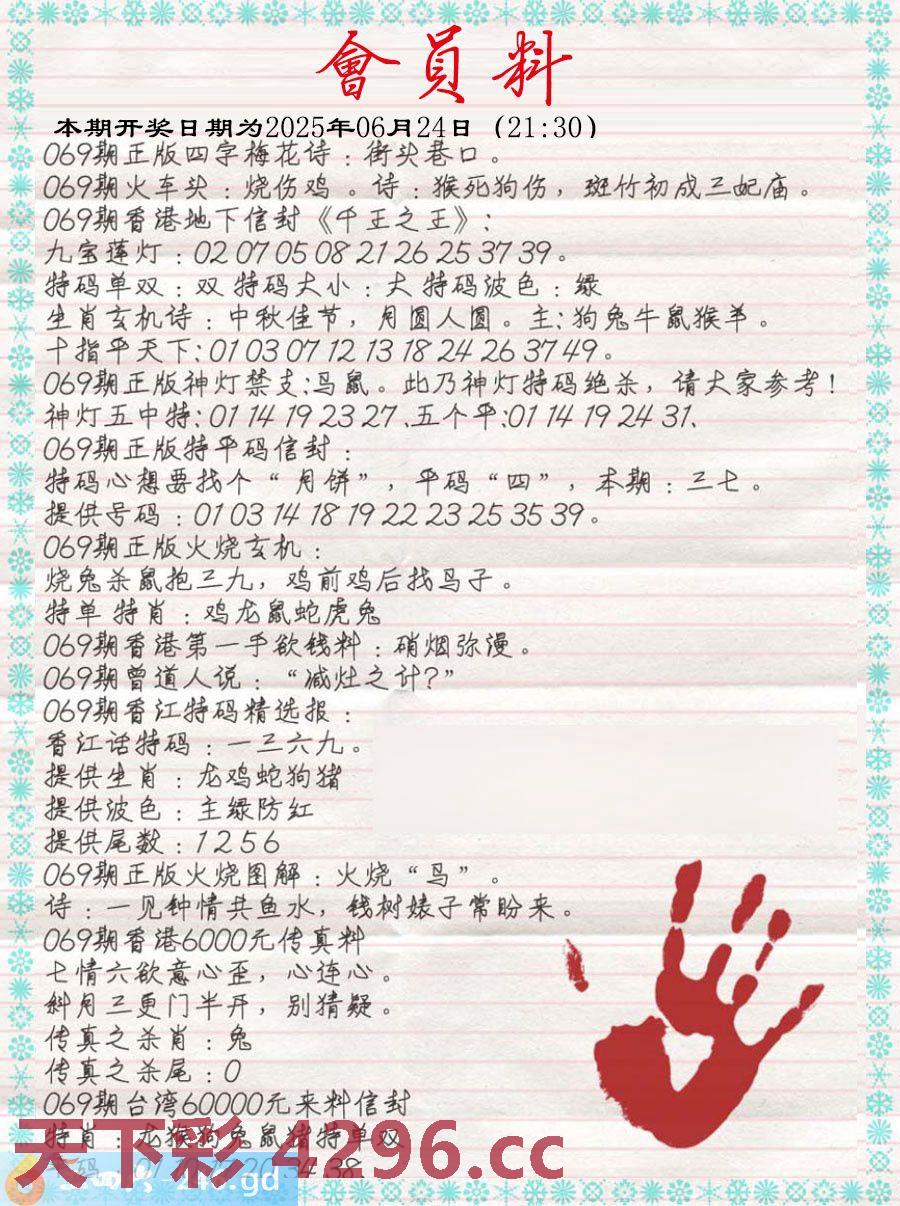 會員料
本期开奖日期为2025年06月24日（21:30）
069期正版四字梅花诗：街头巷口。
069期火车头：烧伤鸡。诗：猴死狗伤，斑竹初成三妃庙。
069期香港地下信封《千王之王》：
九宝莲灯：02 07 05 08 21 26 25 37 39。
特码单双：双 特码大小：大 特码波色：绿
生肖玄机诗：中秋佳节，月圆人圆。主:狗兔牛鼠猴羊。
十指平天下:01 03 07 12 13 18 24 26 37 49。
069期正版神灯禁支:马鼠。此乃神灯特码绝杀，请大家参考！
神灯五中特:01 14 19 23 27、五个平:01 14 19 24 31、
069期正版特平码信封：
特码心想要找个“月饼”，平码“四”，本期：三七。
提供号码：01 03 14 18 19 22 23 25 35 39。
069期正版火烧玄机：
烧兔杀鼠抱三九，鸡前鸡后找马子。
特单 特肖：鸡龙鼠蛇虎兔
069期香港第一手欲钱料：硝烟弥漫。
069期曾道人说：“减灶之计?”
069期香江特码精选报：
香江话特码：一三六九。
提供生肖：龙鸡蛇狗猪
提供波色：主绿防红
提供尾数：1 2 5 6
069期正版火烧图解：火烧“鸟”。
诗：一见钟情共鱼水，钱树婊子常盼来。
069期香港6000元传真料
七情六欲意心歪，心连心。
斜月三更门半开，别猜疑。
传真之杀肖：兔
传真之杀尾：0
069期台湾60000元来料信封
特肖：龙猴狗兔鼠猪特单双
天下彩 4296.cc
34 38
.gd